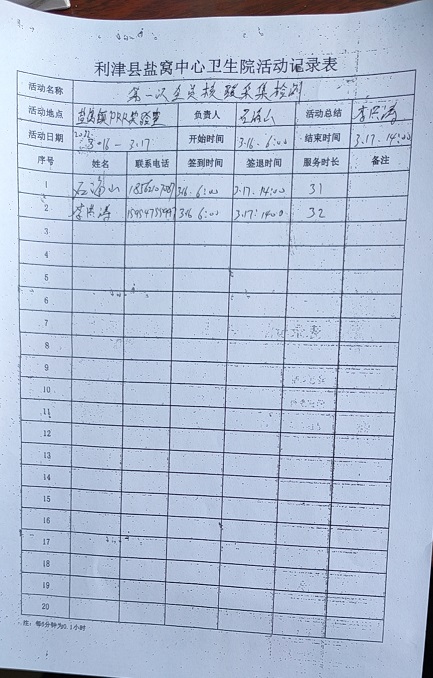 利津县盐窝中心卫生院活动记录表
活动名称 第一次全员核酸采集检测
活动地点 盐窝镇PRR实验室 负责人 活动总结 李洪涛
活动日期 3.16-3.17 开始时间 3.16. 6:00 结束时间 3.17. 14:00
序号 姓名 联系电话 签到时间 签退时间 服务时长 备注
1 3.16. 6:00 3.17. 14:00 31
2 李洪涛 3.16 6:00 3.17: 14:00 32
3
4
5
6
7
8
9
10
11
12
13
14
15
16
17
18
19
20
注：每6分钟为0.1小时